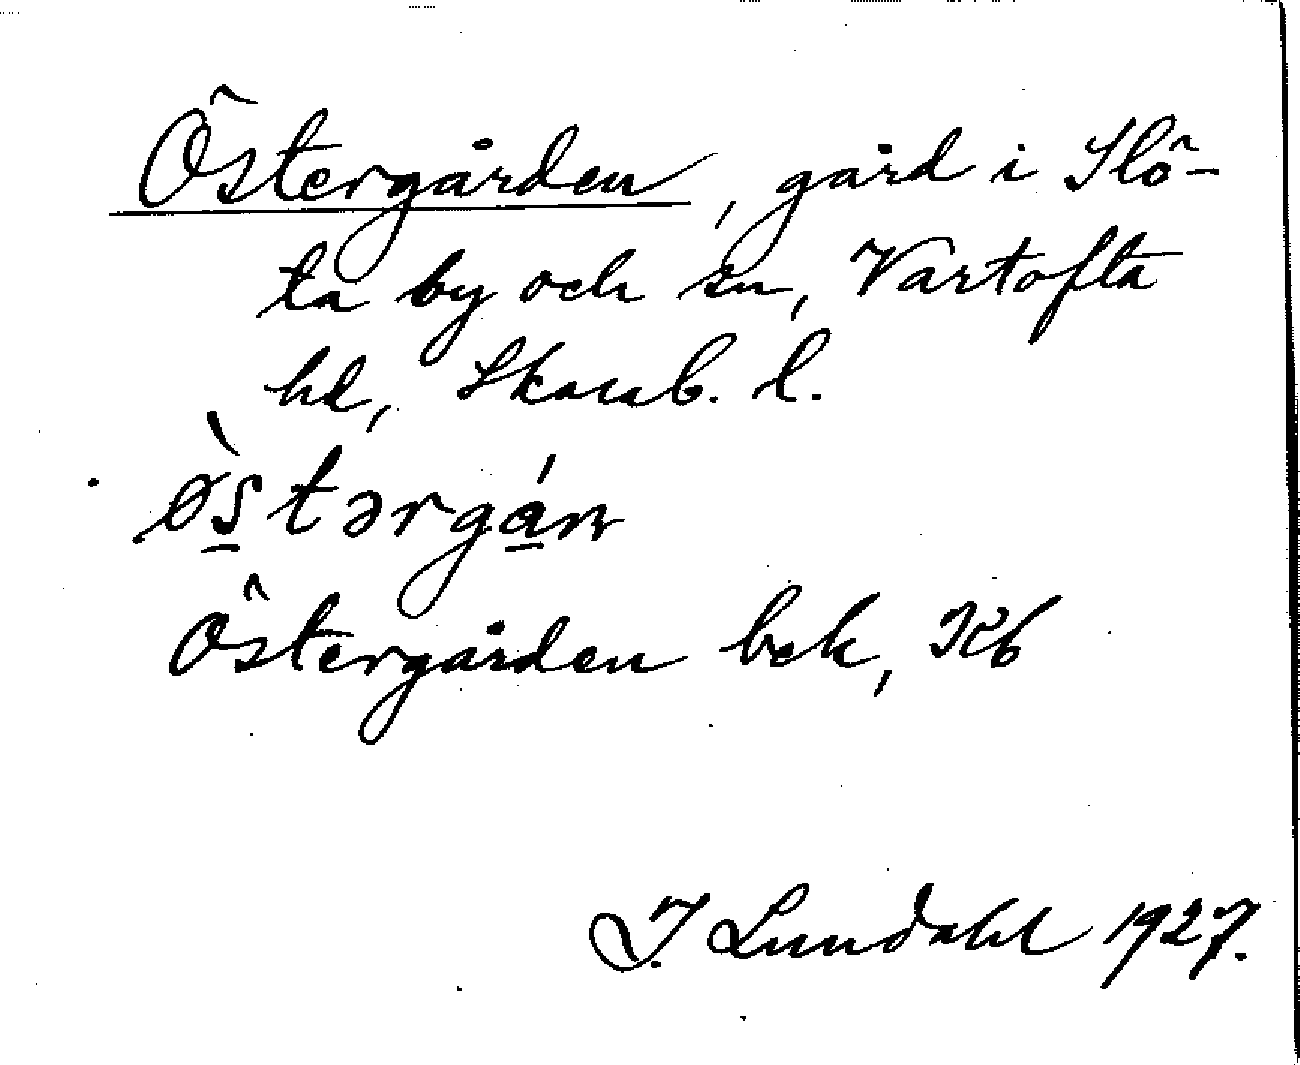 Östergården, gård i Slö-
ta by och sn, Vartofta
hd, Skarab. l.
ø̀s̲tərgá̲n
Östergården bek, Kb
I. Lundahl 1927.